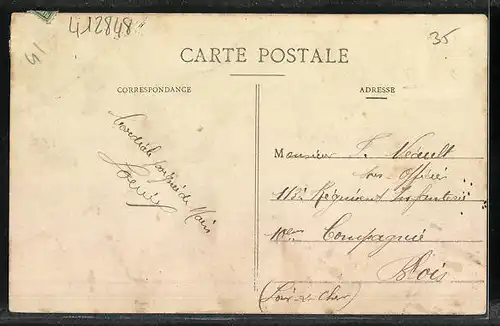 412848
41
35
CARTE POSTALE
CORRESPONDANCE
ADRESSE
Cordiale poignée de Main
Monsieur F.
Sous-Officier
113e Régiment Infanterie
10eme Compagnie
Blois
(Loir-et-Cher)